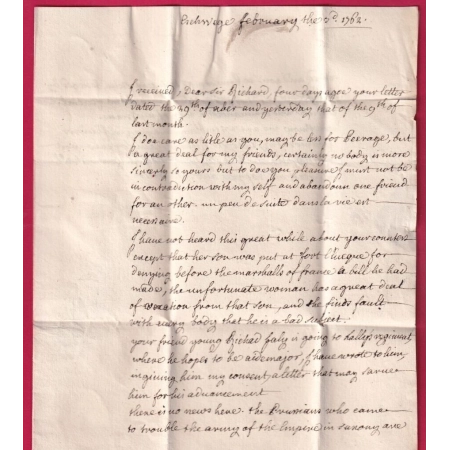 Eschwege february the 5th 1762.
I received, dear Sir Richard, four days agoe your letter
dated the 29th of xber and yesterday that of the 9th of
last month.
I doe care as little as you, may be less for Peerage, but
a great deal for my friends, certainly no body is more
sincerly so yours but to doe you pleasure I must not be
in contradiction with my self and abandoun one friend
for an other. un peu de suite dans la vie est
necessaire.
I have not heard this great while about your countess
except that her son was put at fort l'Eveque for
denying before the marshalls of france a bill he had
made, the unfortunate woman has a great deal
of vexation from that son, and she finds fault
with every body that he is a bad subject.
your friend young Richard is going to regiment,
where he hopes to be aidemajor, I have wrote to him,
in giving him my consent a letter that may serve
him for his advancement.
there is no news here. the Prussians who came
to trouble the army of the Empire in saxony are